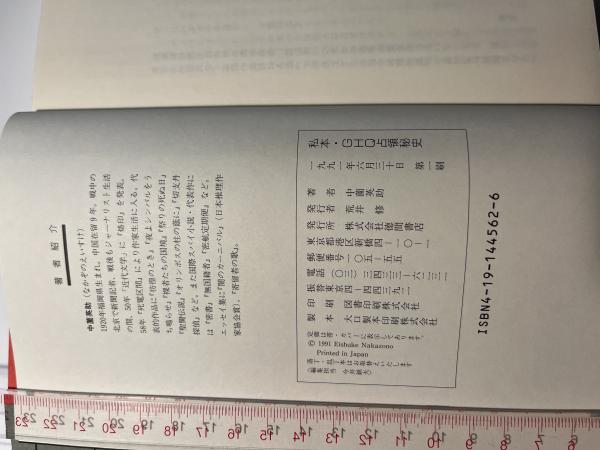 著者紹介
中薗英助(なかぞのえいすけ)
1920年福岡県生まれ。中国在留9年。戦中の
北京で新聞記者。戦後もジャーナリスト生活
の間、50年「近代文学」に『烙印』を発表。
58年『死電区間』により作家生活に入る。代
表的作品に『彷徨のとき』『夜よシンバルをう
ち鳴らせ』『侮者たちの国境』『祭りの死ぬ日』
『聖蘭伝説』『オリンポスの柱の蔭に』『切支丹
探偵』など。また国際スパイ小説・代表作に
は『密書』『無国籍者』『密航定期便』など。
エッセイ集に『闇のカーニバル』(日本推理作
家協会賞)、『寄留者の歌』。
私本・GHQ占領秘史
一九九一年六月三十日 第一刷
著者 中薗英助
発行者 荒井修
発行所 株式会社 徳間書店
東京都港区新橋四ー一〇ー一
郵便番号一〇五ー五五
電話(〇三)三四三三ー六二三一
振替東京四ー四四三九二
印刷 図書印刷株式会社
製本 大口製本印刷株式会社
定価は帯・カバーに表示してあります。
© 1991 Eisuke Nakazono
Printed in Japan
落丁・乱丁本はお取替えいたします
ISBN4-19-144562-6